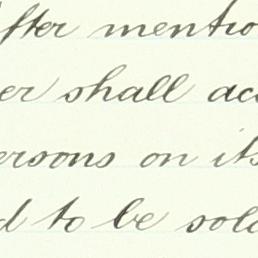 After mentio
er shall acc
ersons on its
d to be sold